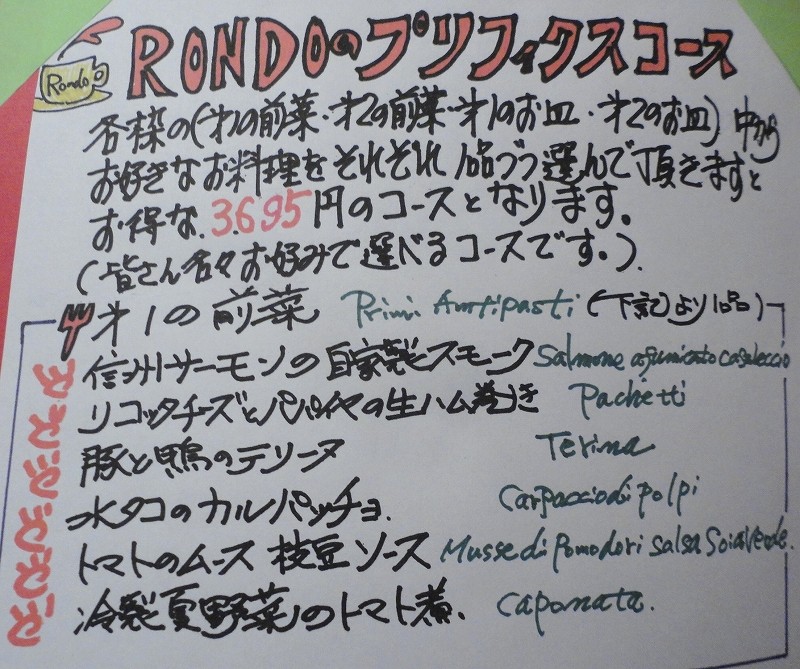 Rondo
RONDOのプリフィクスコース
各枠の(才1の前菜・才2の前菜・才1のお皿・才2のお皿)中から
お好きなお料理をそれぞれ1品づつ選んで頂きますと
お得な.3.695円のコースとなります。
(皆さん各々お好みで選べるコースです。)
才1の前菜 Primi Antipasti (下記より1品)
信州サーモンの自家製スモーク Salmone afumicato casaleccio
リコッタチーズとパパイヤの生ハム巻き Pachetti
豚と鴨のテリーヌ Terina
水タコのカルパッチョ. Carpaccio di polpi
トマトのムース 枝豆ソース Musse di Pomodori Salsa Soiaverde.
冷製夏野菜のトマト煮. Caponata.